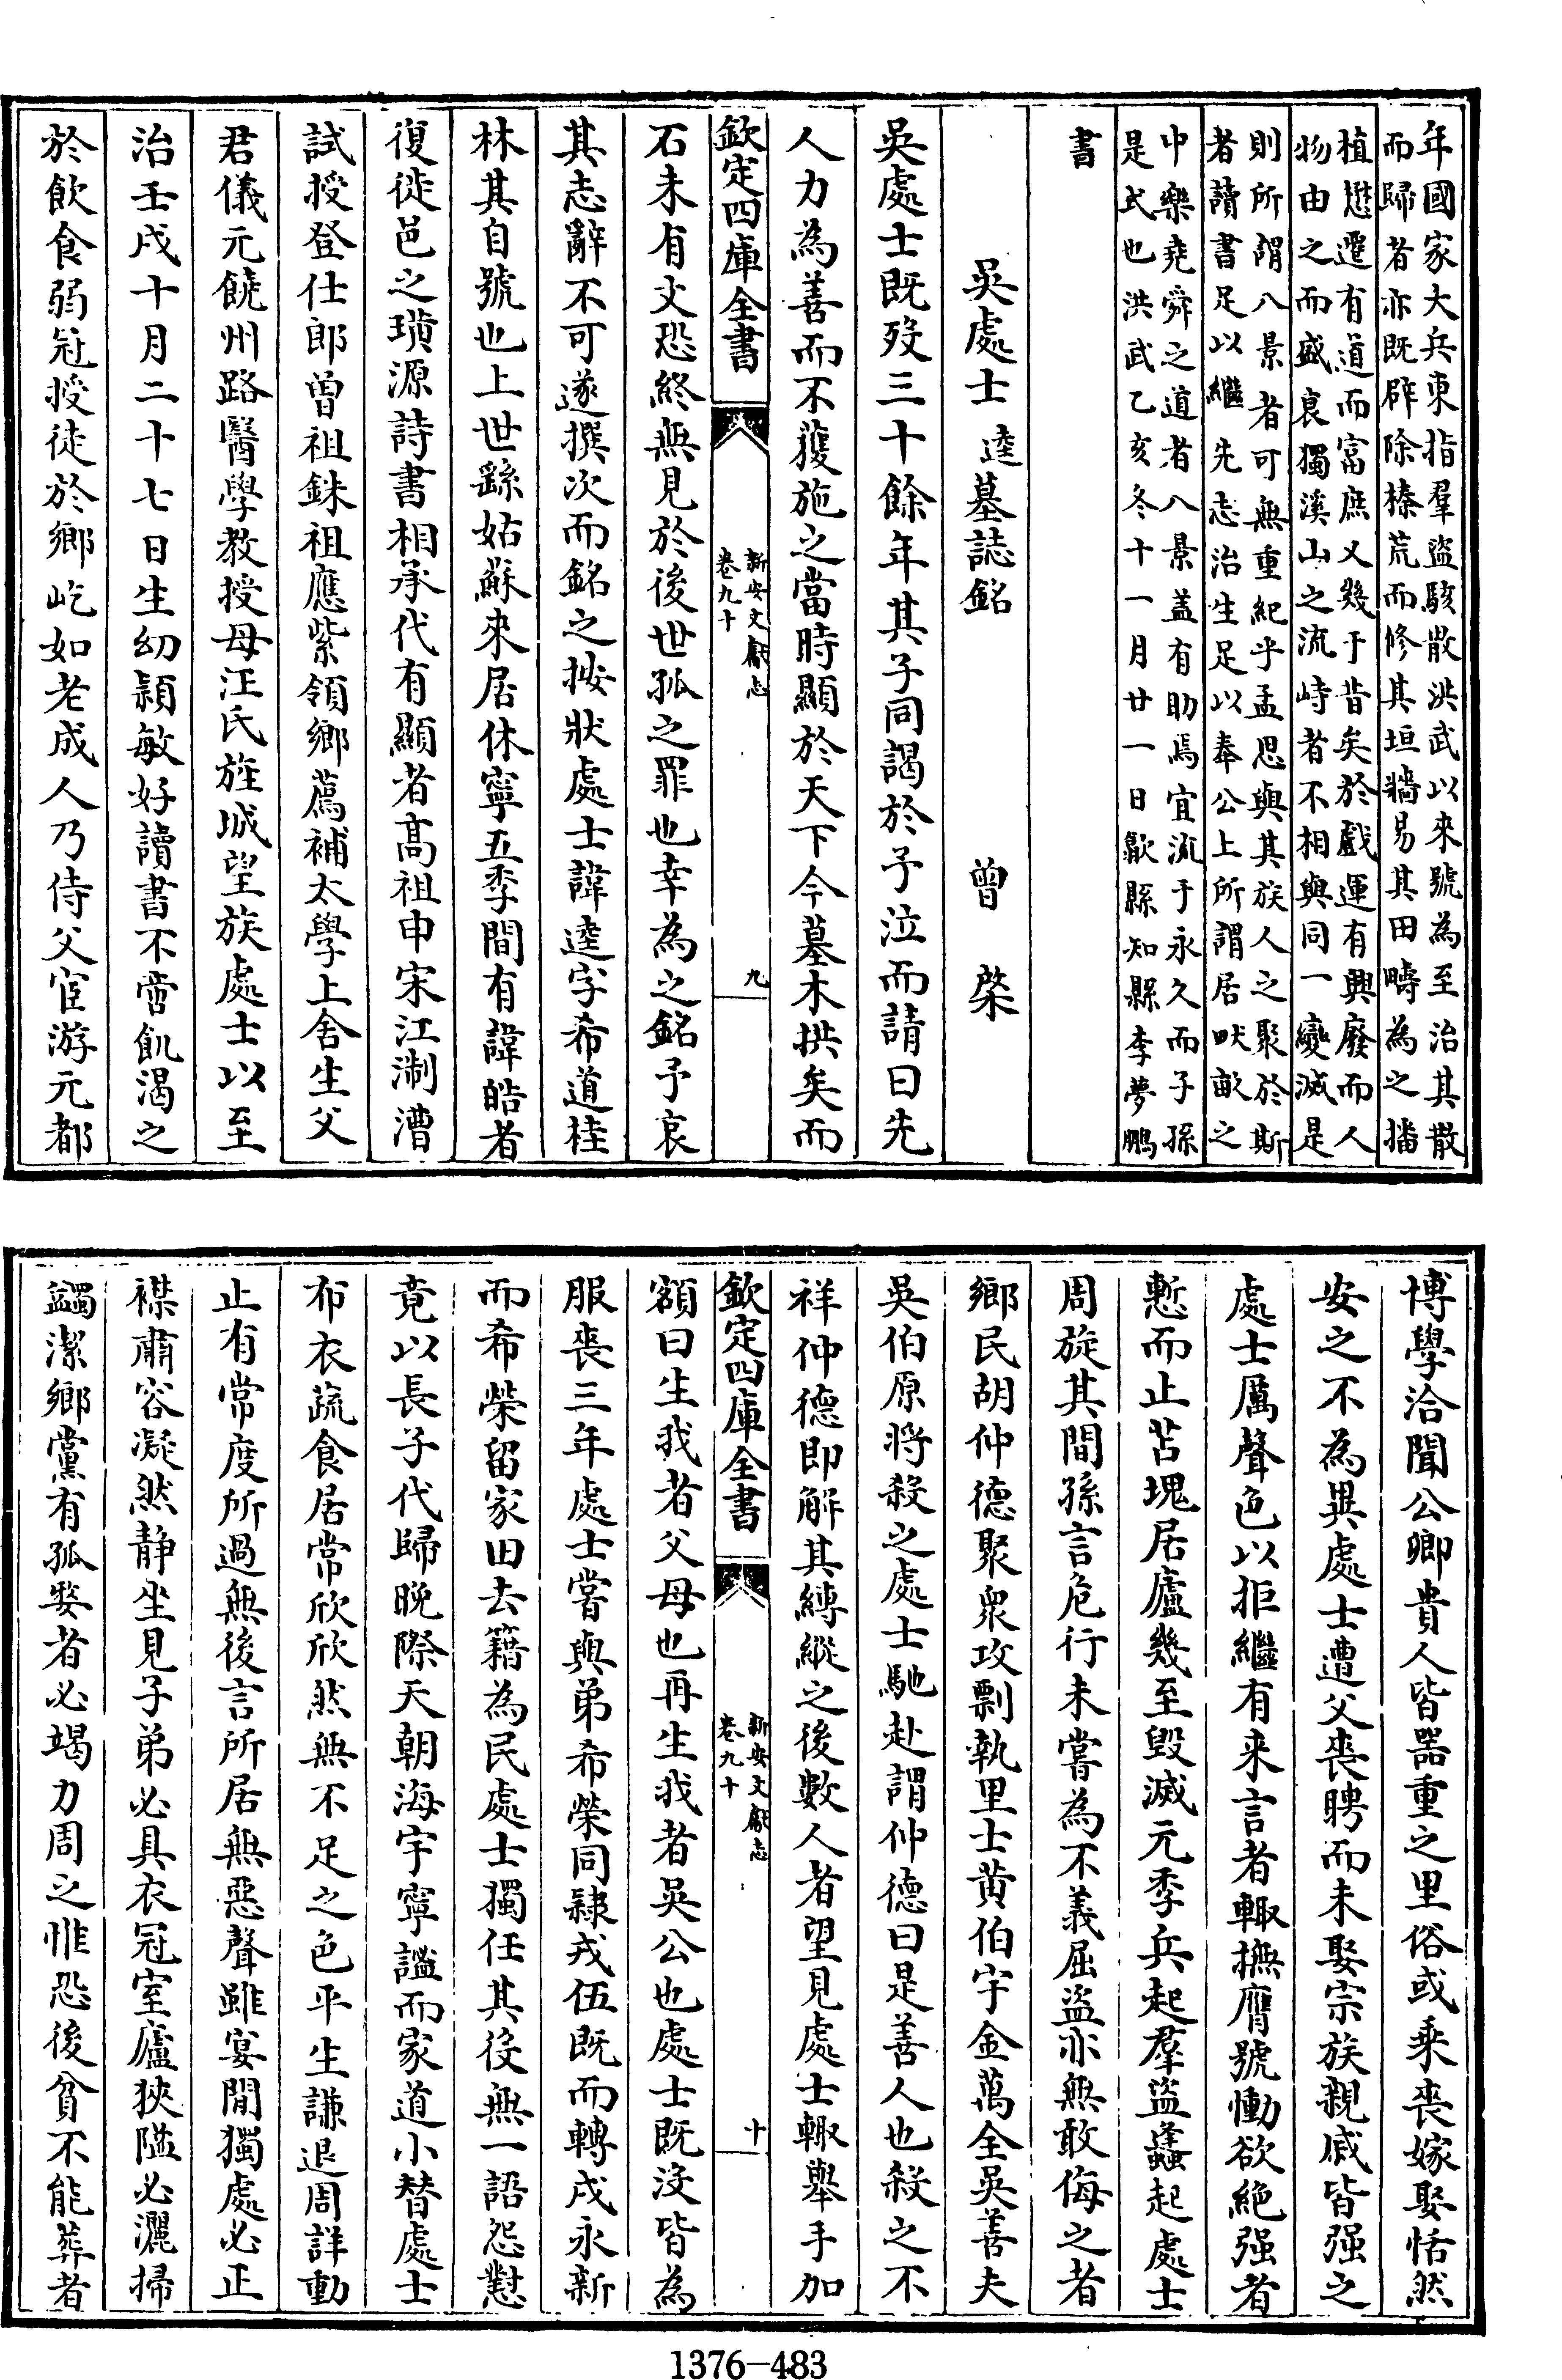 年國家大兵東指羣盜駭散洪武以來號為至治其散
而歸者亦既辟除榛荒而修其垣牆易其田疇為之播
植懋遷有道而富庶又幾于昔矣於戲運有興廢而人
物由之而盛衰獨溪山之流峙者不相與同一變滅是
則所謂八景者可無重紀乎孟思與其族人之聚於斯
者讀書足以繼先志治生足以奉公上所謂居畎畝之
中樂堯舜之道者八景盖有助焉宜流于永久而子孫
是式也洪武乙亥冬十一月廿一日歙縣知縣李夢鵬
書
吳處士逵墓誌銘 曾棨
吳處士既歿三十餘年其子同謁於予泣而請曰先
人力為善而不獲施之當時顯於天下今墓木拱矣而
欽定四庫全書 新安文獻志 卷九十 九
石未有文恐終無見於後世孤之罪也幸為之銘予哀
其志辭不可遂撰次而銘之按狀處士諱逵字希道桂
林其自號也上世繇姑蘇來居休寧五季間有諱皓者
復徙邑之璜源詩書相承代有顯者高祖申宋江淛漕
試授登仕郎曾祖銖祖應紫領鄉薦補太學上舍生父
君儀元饒州路醫學教授母汪氏旌城望族處士以至
治壬戌十月二十七日生幼穎敏好讀書不啻飢渴之
於飲食弱冠授徒於鄉屹如老成人乃侍父宦游元都
博學洽聞公卿貴人皆器重之里俗或乘喪嫁娶恬然
安之不為異處士遭父喪聘而未娶宗族親戚皆强之
處士厲聲色以拒繼有来言者輙撫膺號慟欲絶强者
慙而止苫塊居廬幾至毀滅元季兵起羣盜蠭起處士
周旋其間孫言危行未嘗為不義屈盜亦無敢侮之者
鄉民胡仲德聚衆攻剽執里士黄伯宇金萬全吳善夫
吳伯原將殺之處士馳赴謂仲德曰是善人也殺之不
祥仲德即解其縛縱之後數人者望見處士輙舉手加
欽定四庫全書 新安文獻志 卷九十 十
額曰生我者父母也再生我者吳公也處士既沒皆為
服喪三年處士嘗與弟希榮同隸戎伍既而轉戍永新
而希榮留家田去籍為民處士獨任其役無一語怨懟
竟以長子代歸晚際天朝海宇寧謐而家道小替處士
布衣蔬食居常欣欣然無不足之色平生謙退周詳動
止有常度所過無後言所居無惡聲雖宴閒獨處必正
襟肅容凝然静坐見子弟必具衣冠室廬狹隘必灑掃
蠲潔鄉黨有孤嫠者必竭力周之惟恐後貧不能葬者
1376—483